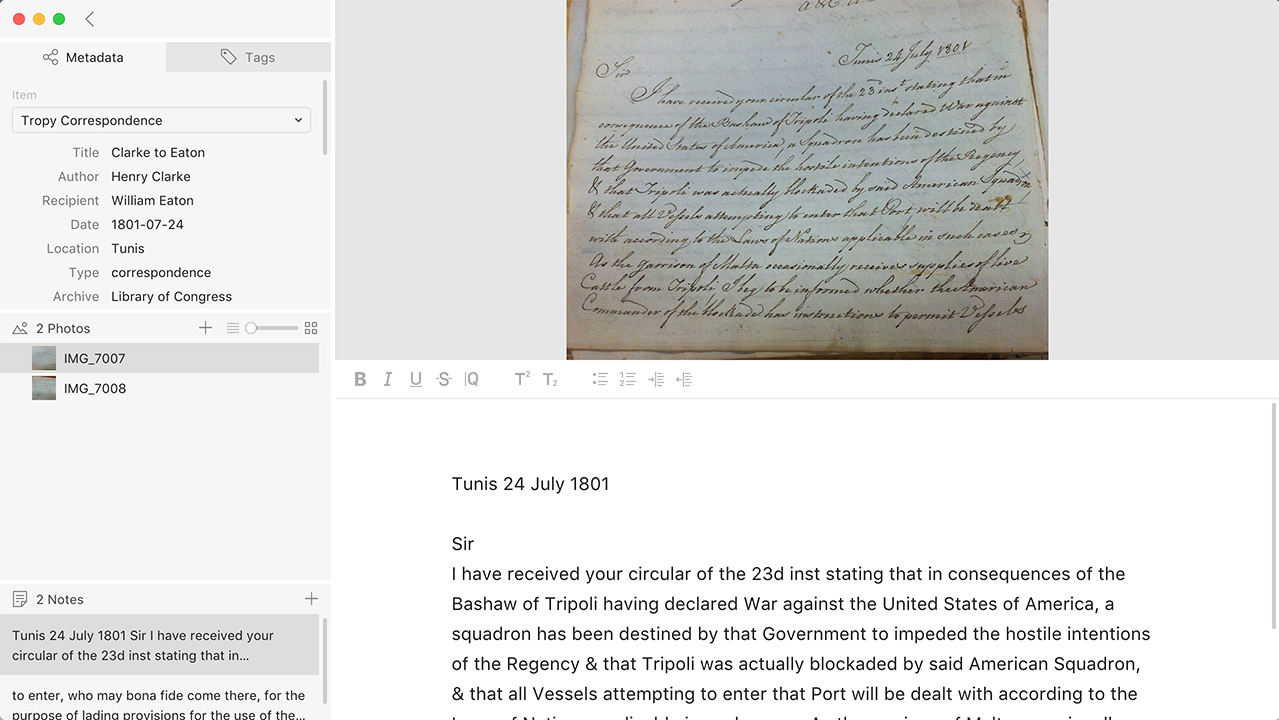 Metadata
Tags
Item
Tropy Correspondence
Title Clarke to Eaton
Author Henry Clarke
Recipient William Eaton
Date 1801-07-24
Location Tunis
Type correspondence
Archive Library of Congress
2 Photos
IMG_7007
IMG_7008
2 Notes
Tunis 24 July 1801 Sir I have received your
circular of the 23d inst stating that in...
to enter, who may bona fide come there, for the
purpose of lading provisions for the use of the...
Tunis 24 July 1801
Sir
I have received your circular of the 23 inst stating that in
consequence of the Bashaw of Tripoli having declared War against
the United States of America, a Squadron has been destined by
that Government to impede the hostile intentions of the Regency
& that Tripoli was actually blockaded by said American Squadn
& that all Vessels attempting to enter that Port will be dealt
with according to the Laws of Nations applicable in such cases
As the garrison of Malta occasionally receives supplies of live
Cattle from Tripoli I beg to be informed whether the American
Commander of the blockade has instructions to permit Vessels
B I U S Q T2 T2
Tunis 24 July 1801
Sir
I have received your circular of the 23d inst stating that in consequences of the
Bashaw of Tripoli having declared War against the United States of America, a
squadron has been destined by that Government to impeded the hostile intentions
of the Regency & that Tripoli was actually blockaded by said American Squadron,
& that all Vessels attempting to enter that Port will be dealt with according to the